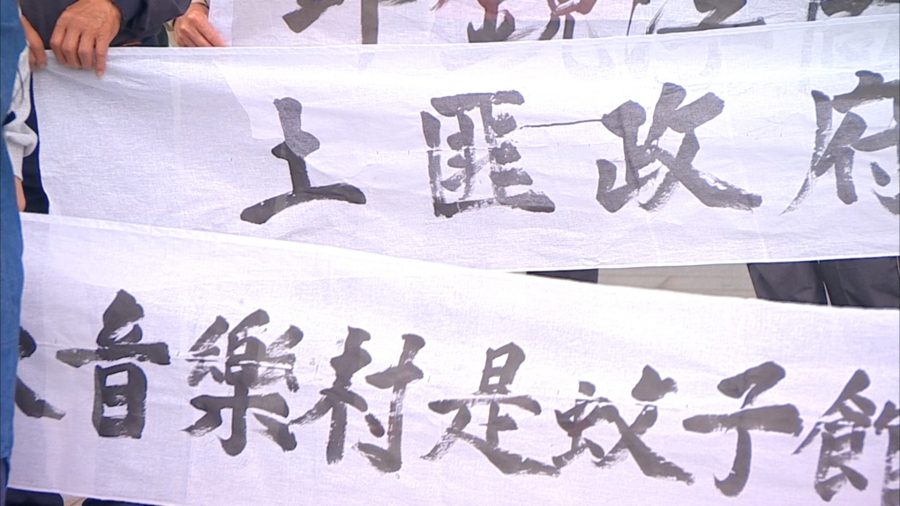 土匪政府
音樂村是蚊子館